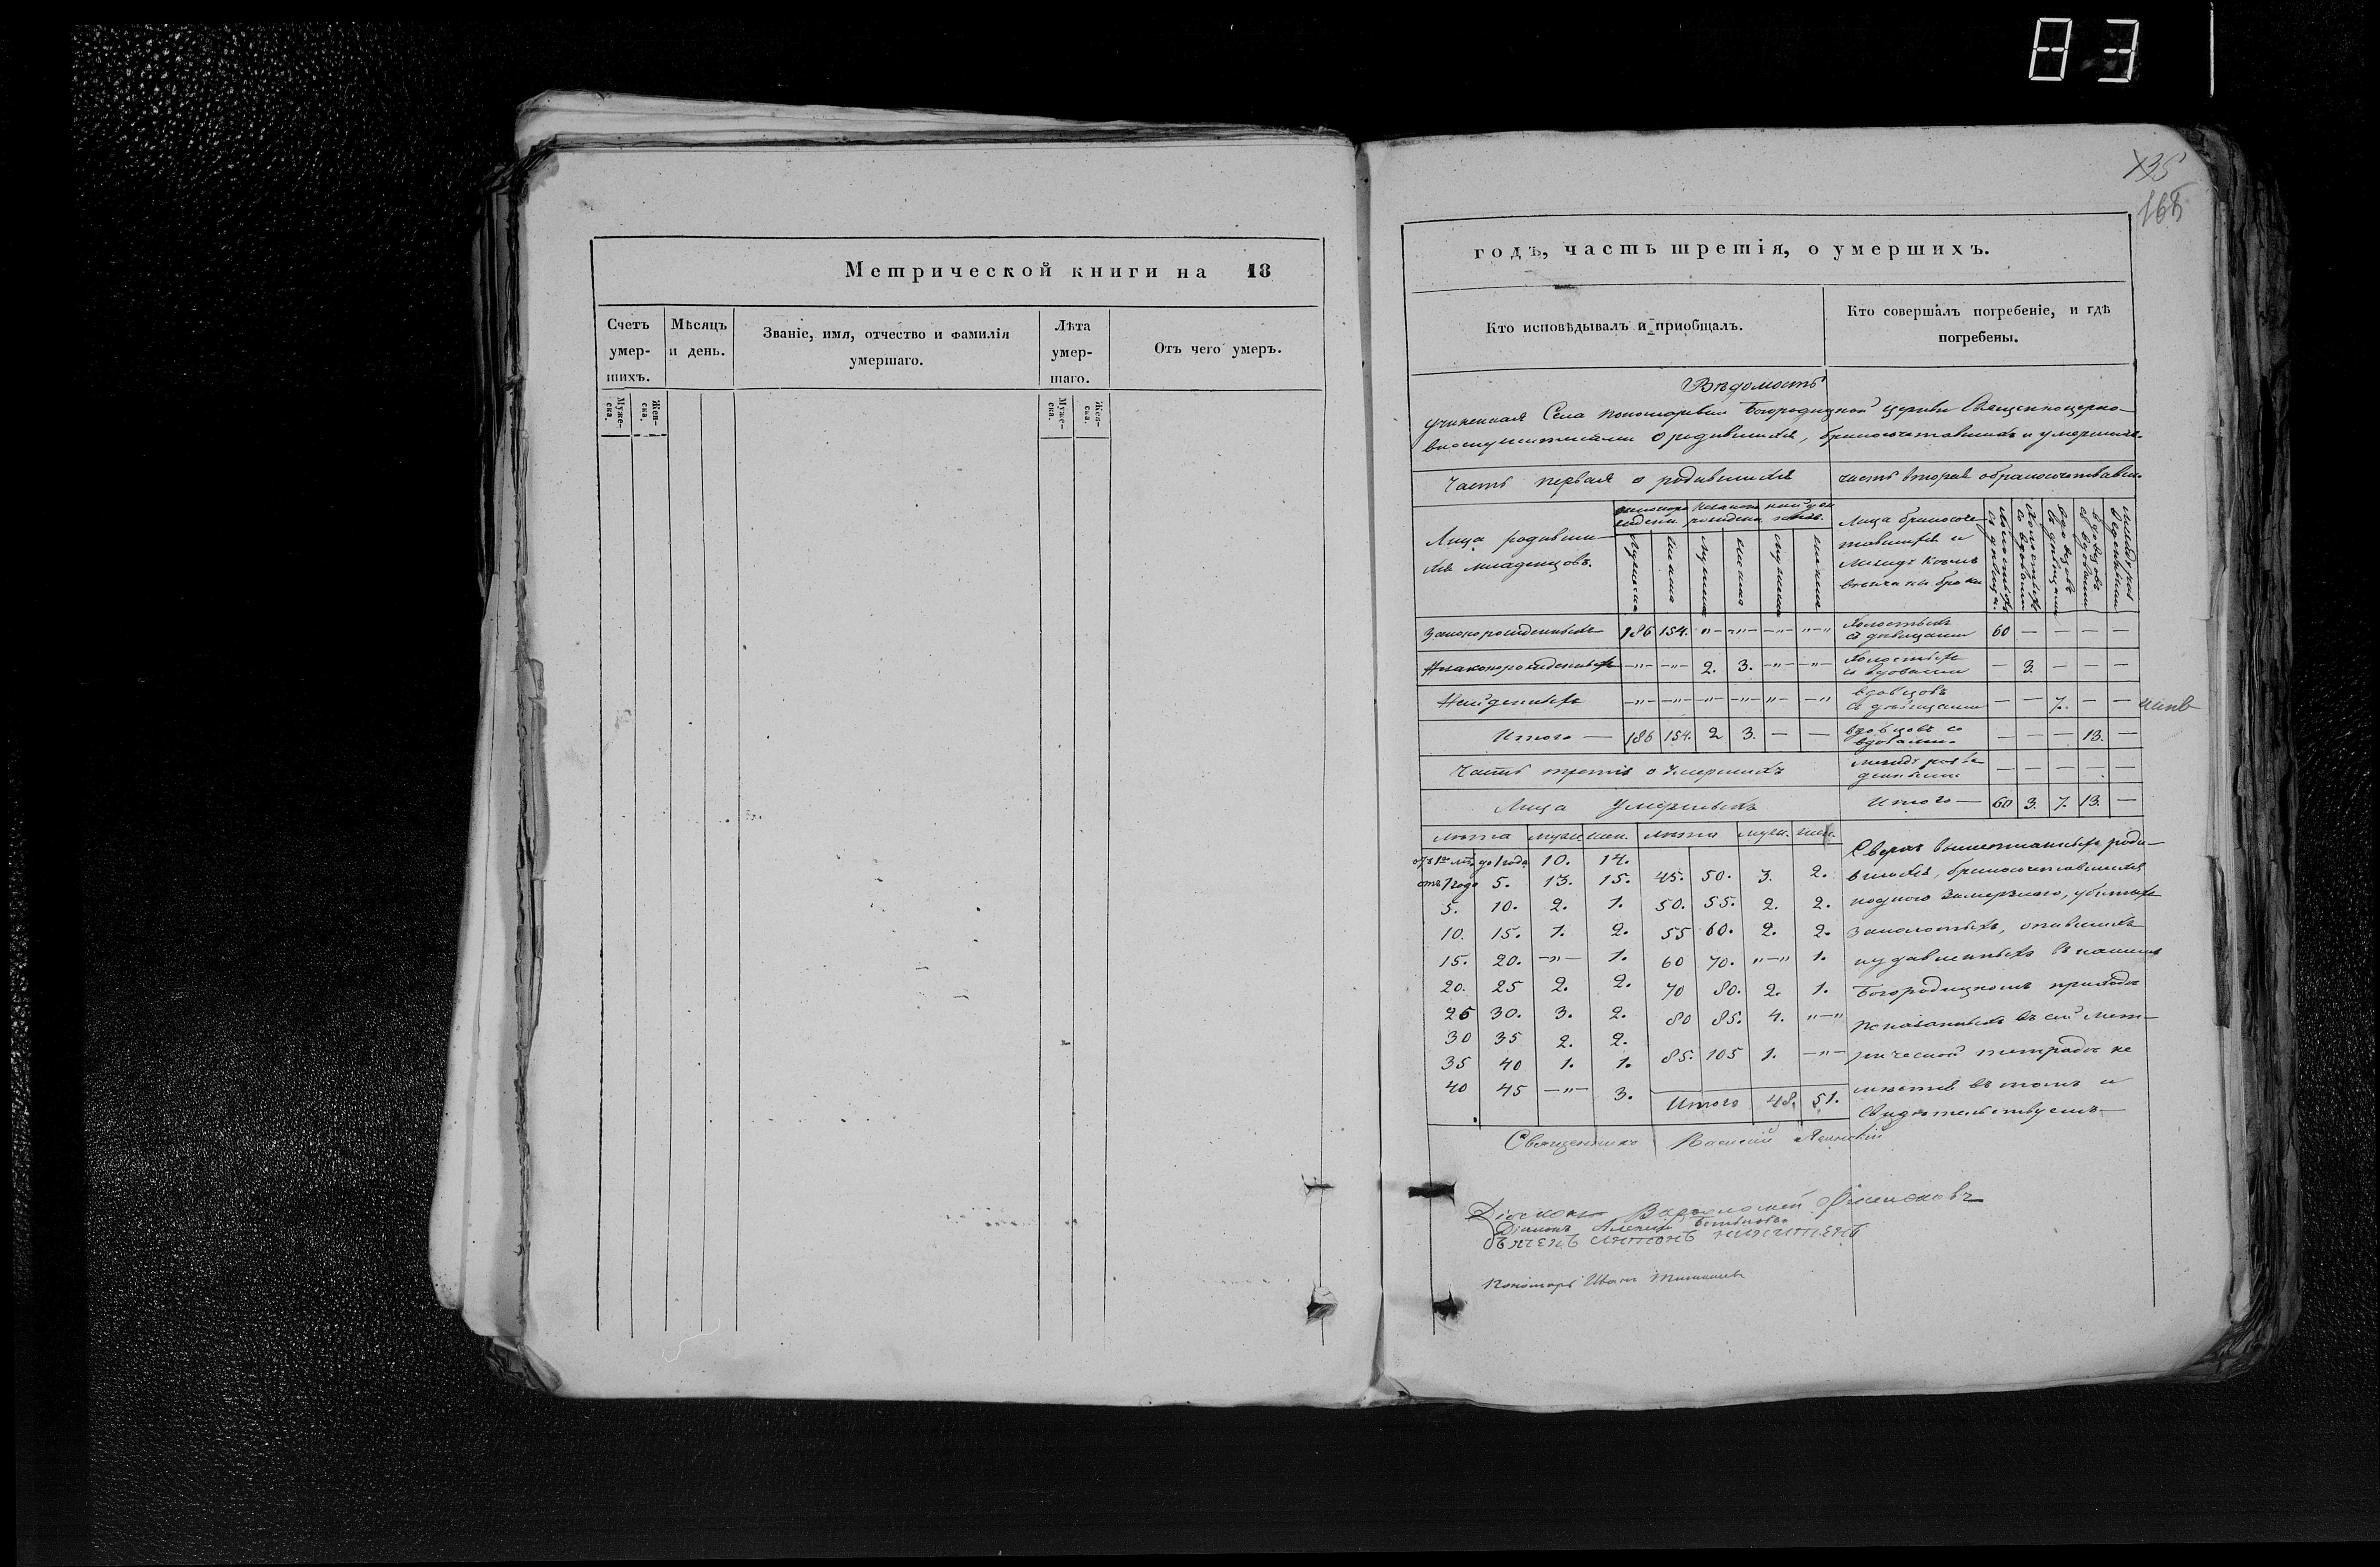 83
165
Метрической книги на 18
Счетъ умершихъ.
Мѣсяцъ и день.
Званіе, имя, отчество и фамилія умершаго.
Лѣта умершаго.
Отъ чего умеръ.
Мужеска.
Женска.
Мужеска.
Женска.
годъ, часть третія, о умершихъ.
Кто исповѣдывалъ и приобщалъ.
Кто совершалъ погребеніе, и гдѣ погребены.
Вѣдомость
учиненная Села Пономаревки Богородицкой церкви Священноцерко-
внослужителями о родившихся, бракосочетавшихся и умершихъ.
Часть первая о родившихся
часть вторая о бракосочетавши.
Лица родивши-
хся младенцовъ.
Лица бракосоче-
тавшихся и
между коимъ
венчаны браки
Законорожденныхъ 186 154. „ – – „ – – „ – „ – „
Холостыхъ съ дѣвицами 60 — — — —
Незаконорожденныхъ – „ – – „ – 2. 3. – „ – – „
Холостыхъ со вдовами — 3. — — —
Найденныхъ – „ – – „ – – „ – – „ – „ – – „
вдовцовъ съ дѣвицами — — 7. — —
Итого — 186 154. 2 3. — —
вдовцовъ со вдовами — — — 13. —
Часть третія о умершихъ
между разведенными — — — — —
Лица умершихъ
Итого — 60 3. 7. 13. —
лѣта муж. жен. лѣта муж. жен.
до 1 года 10. 14.
отъ 1 года 5. 13. 15. 45. 50. 3. 2.
5. 10. 2. 1. 50. 55. 2. 2.
10. 15. 1. 2. 55 60. 2. 2.
15. 20. – „ – 1. 60 70. „ – „ 1.
20. 25 2. 2. 70 80. 2. 1.
25 30. 3. 2. 80 85. 4. „ – „
30 35 2. 2.
35 40 1. 1. 85. 105 1. – „ –
40 45 – „ – 3.
Итого 48. 51.
Сверхъ вышеписанныхъ роди-
вшихся, бракосочетавшихся
ни одного замерзшаго, убитыхъ
опившихся
и удавленныхъ въ нашемъ
Богородицкомъ приходѣ
показанныхъ въ сей мет-
рической тетради не
имѣется въ томъ и
Свидѣтельствуемъ
Священникъ Василій
Діаконъ Варфоломей
Діаконъ Алексей
Пономарь Иванъ